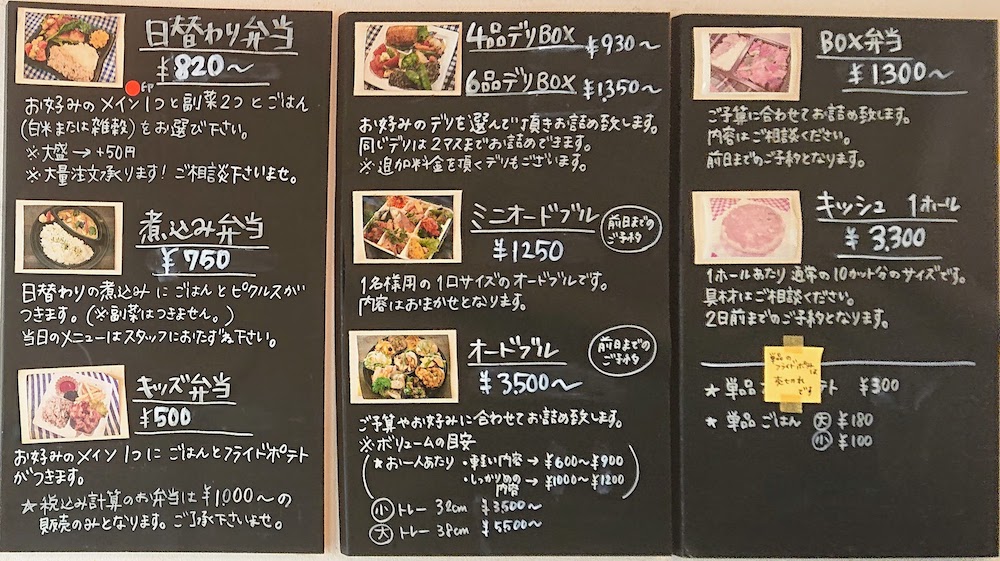 日替わり弁当
¥820〜
お好みのメイン1つと副菜2つとごはん
(白米または雑穀)をお選び下さい。
※大盛→+50円
※大量注文承ります!ご相談下さいませ。
煮込み弁当
¥750
日替わりの煮込みにごはんとピクルスが
つきます。(※副菜はつきません。)
当日のメニューはスタッフにおたずね下さい。
キッズ弁当
¥500
お好みのメイン1つにごはんとフライドポテト
がつきます。
★税込み計算のお弁当は¥1000〜の
販売のみとなります。ご了承下さいませ。
4品デリBOX ¥930〜
6品デリBOX ¥1,350〜
お好みのデリを選んで頂きお詰め致します。
同じデリは2マスまでお詰めできます。
※追加料金を頂くデリもございます。
ミニオードブル
¥1250
前日までの
ご予約
1名様用の1口サイズのオードブルです。
内容はおまかせとなります。
オードブル
¥3,500〜
前日までの
ご予約
ご予算やお好みに合わせてお詰め致します。
※ボリュームの目安
(★お一人あたり・軽い内容→¥600〜¥900
・しっかりめの内容→¥1000〜¥1200)
小 トレー 32cm ¥3500〜
大 トレー 38cm ¥5500〜
BOX弁当
¥1,300〜
ご予算に合わせてお詰め致します。
内容はご相談ください。
前日までのご予約となります。
キッシュ 1ホール
¥3,300
1ホールあたり通常の10カット分のサイズです。
具材はご相談ください。
2日前までのご予約となります。
単品の
フライドポテトは
売り切れ
です
★単品 テト ¥300
★単品ごはん 大 ¥180
小 ¥100